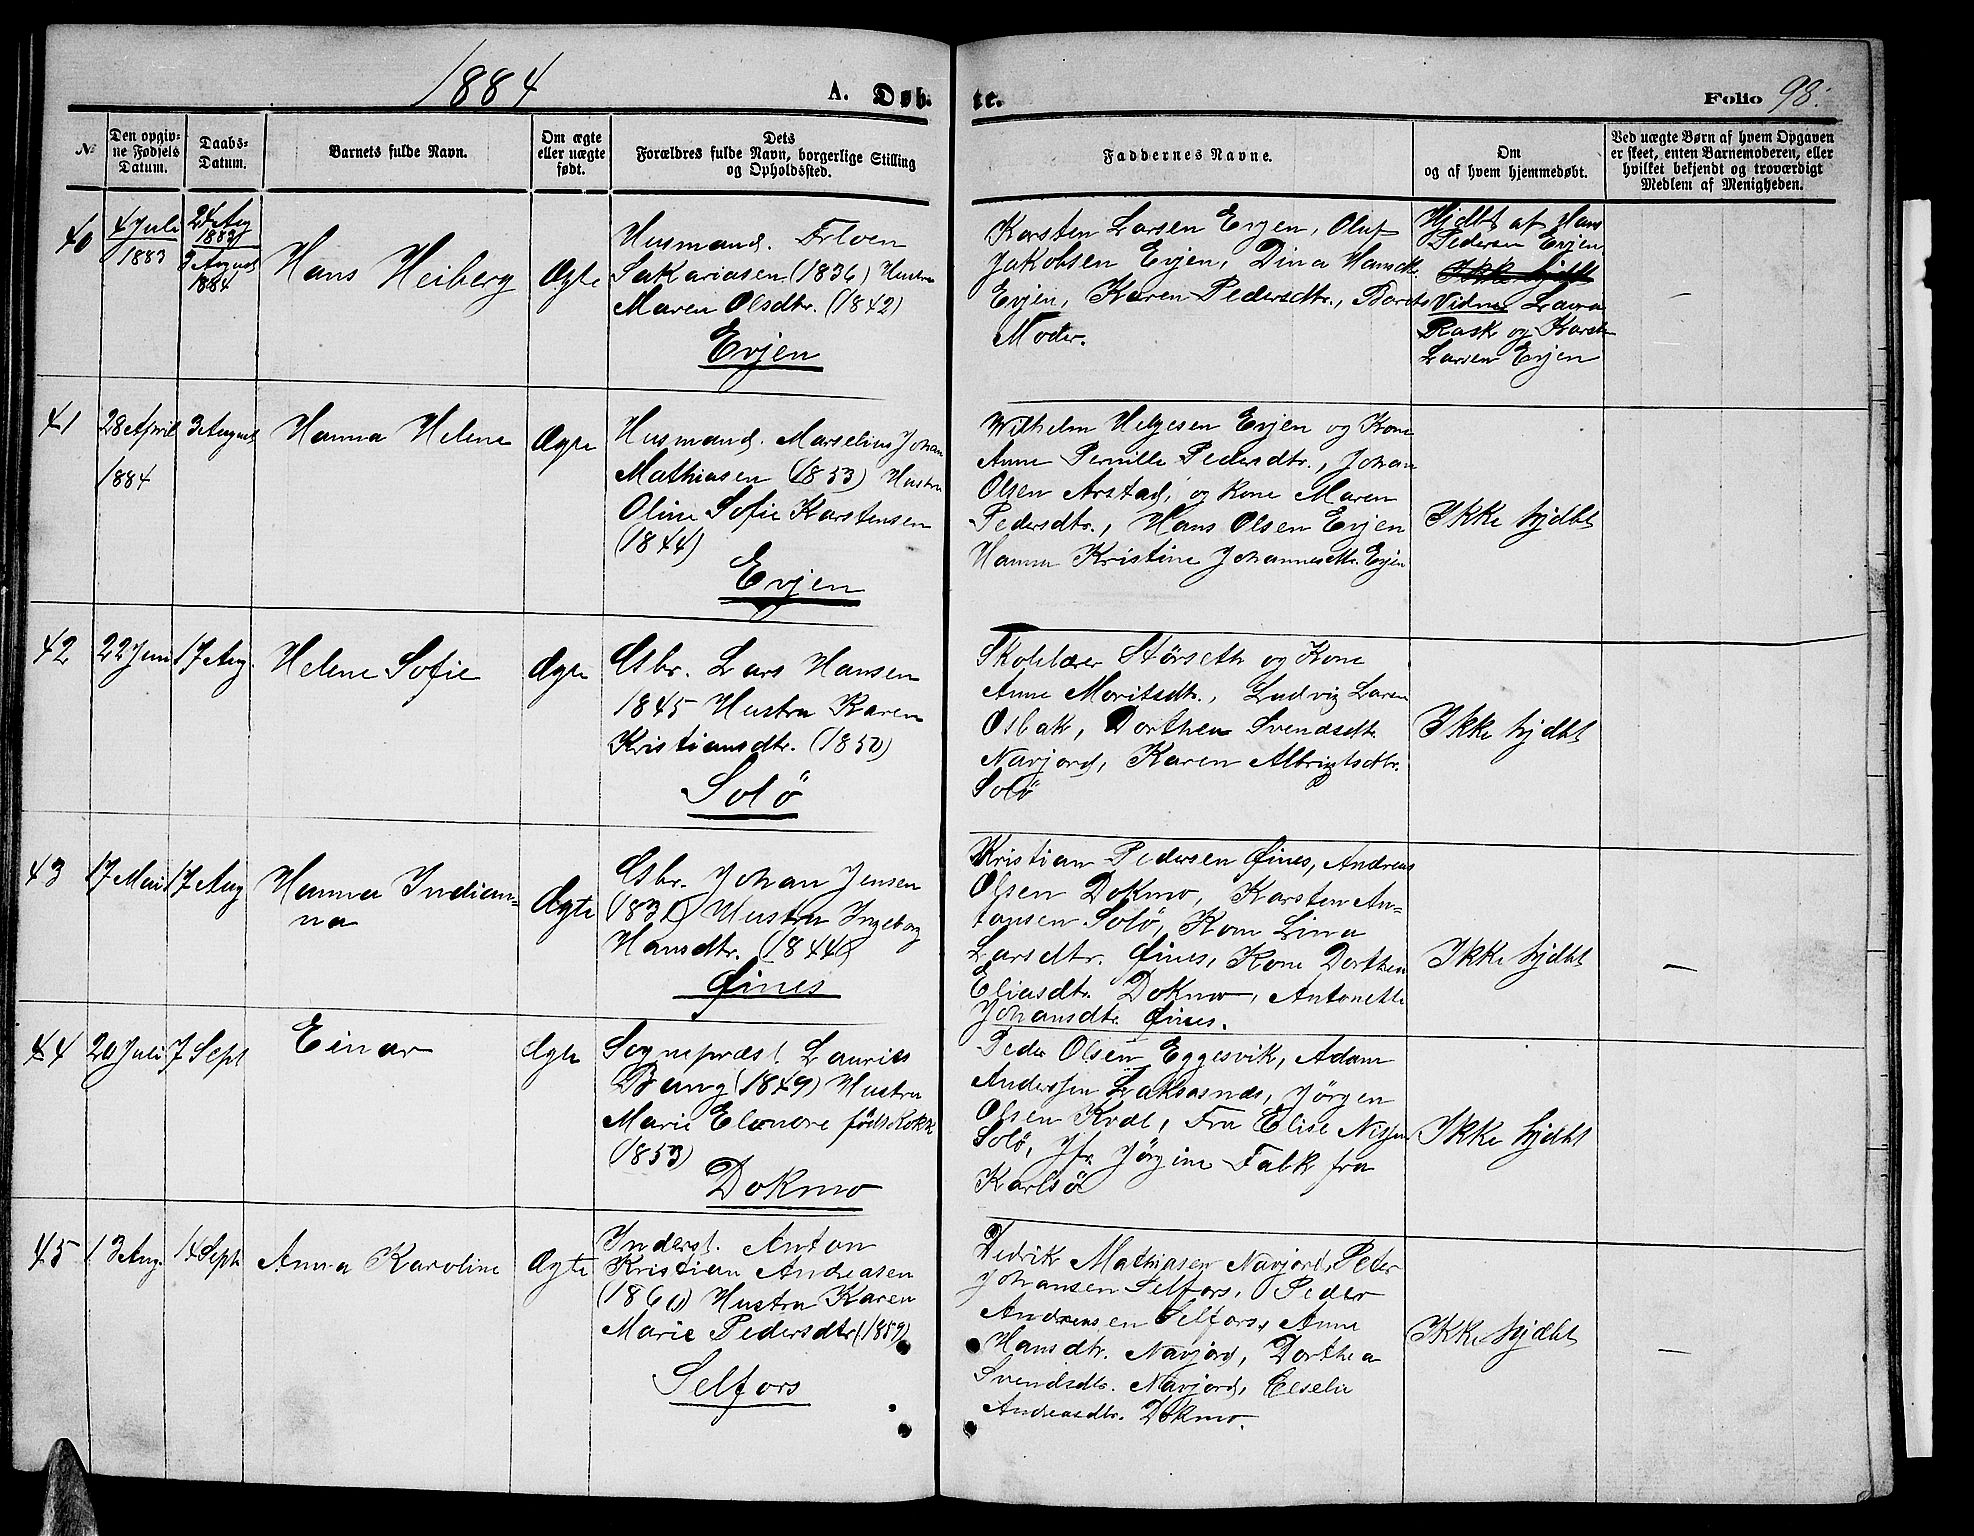 1884
A. Døb-
te.
Folio 98.
№
Den opgiv-
ne Fødsels
Datum.
Daabs-
Datum.
Barnets fulde Navn.
Om ægte
eller uægte
født.
Dets
Forældres fulde Navn, borgerlige Stilling
og Opholdssted.
Faddernes Navne.
Om
og af hvem hjemmedøbt.
Ved uægte Børn af hvem Opgaven
er skeet, enten Barnemoderen, eller
hvilket bekjendt og troværdigt
Medlem af Menigheden.
40
4 Juli
1883
24 Aug
1883
3 August
1884
Hans Heiberg
Ægte
Husmand.
Sakariasen (1836) Hustru
Maren Olsdtr. (1842)
Evjen
Karsten Larsen Evjen, Oluf
Jakobsen Evjen, Dina Hansdtr.
Evjen, Karen Pedersdtr., Barnets
Moder.
Hjdbt af Hans
Pedersen Evjen
Ikke hjdbt
Vidner Laura
Rask og Karsten
Larsen Evjen
—
41
28 April
1884
3 August
Hanna Helene
Ægte
Husmand. Marselius Johan
Mathiasen (1853) Hustru
Oline Sofie Karstensen
(1844)
Evjen
Wilhelm Helgesen Evjen og Kone
Anne Pernille Pedersdtr., Johan
Olsen Arstad, og Kone Maren
Pedersdtr., Hans Olsen Evjen
Hanna Kristine Johannesdtr. Evjen
Ikke hjdbt
42
22 Juni
17 Aug.
Helene Sofie
Ægte
Gsbr. Lars Hansen
1845 Hustru Karen
Kristiansdtr. (1850)
Solö
Skolelærer Störseth og Kone
Anne Moritsdtr., Ludvig Larsen
Osbak, Dorthea Svendsdtr.
Navjord, Karen Albrigtsdtr.
Solö
Ikke hjdbt
43
17 Mai
17 Aug
Hanna Indian-
na
Ægte
Gsbr. Johan Jensen
Hustru Ingeborg
Hansdtr. (1844)
Øines
Kristian Pedersen Øines, Andreas
Olsen Dokmo, Karsten An-
tonsen Solö, Kone Lina
Larsdtr. Øines, Kone Dorthea
Eliasdtr. Dokmo, Antonette
Johansdtr. Øines.
Ikke hjdbt
—
44
20 Juli
7 Sept
Einar
Ægte
Sogneprest. Laurits
Bang (1849) Hustru
Marie Elonore föds Kokk
(1853)
Dokmo
Peder Olsen Eggesvik, Adam
Andersen Laksosnæs, Jörgen
Olsen Kval, Fru Elise Nissen
Solö, Jfr. Jörgine Falk fra
Karlsö
Ikke hjdbt
45
13 Aug.
14 Sept.
Anna Karoline
Ægte
Inderst. Anton
Kristian Andreasen
(1860) Hustru Karen
Marie Pedersdtr (1859)
Selfors
Fredrik Mathiasen Navjord, Peder
Johansen Selfors, Peder
Andreasen Selfors, Anne
Hansdtr. Navjord, Dorthea
Svendsdtr. Navjord, Elselie
Andreasdtr. Dokmo.
Ikke hjdbt
—